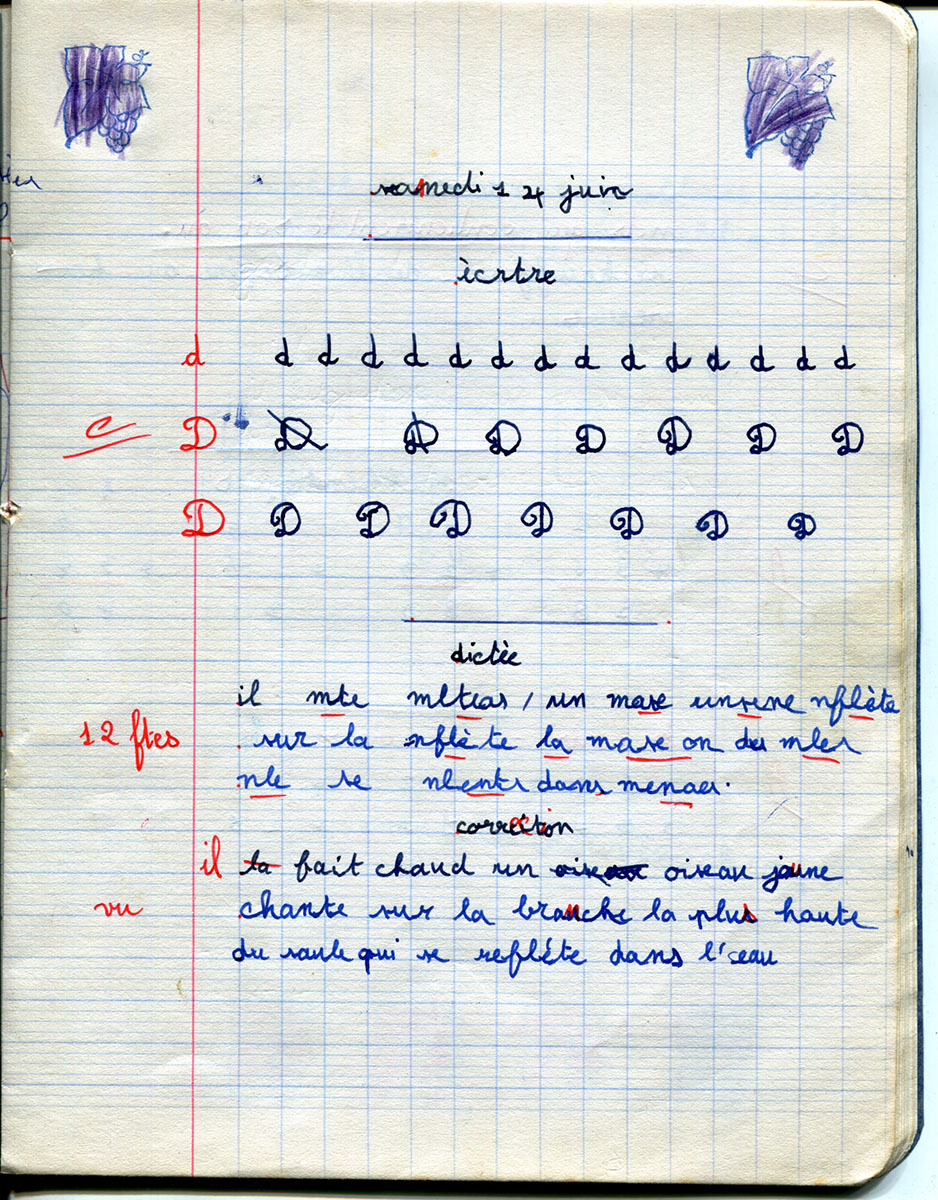 samedi 14 juin
ècrtre
d d d d d d d d d d d d d d d
C D D D D D D D D
D D D D D D D D
dictèe
il mte mlteas / un mase unsune nflète
12 ftes sur la nflète la mase on du mles
nle se nlents dans menaes.
correction
il ta fait chaud un oiseau oiseau jaune
vu chante sur la branche la plus haute
du saule qui se reflète dans l'eeau